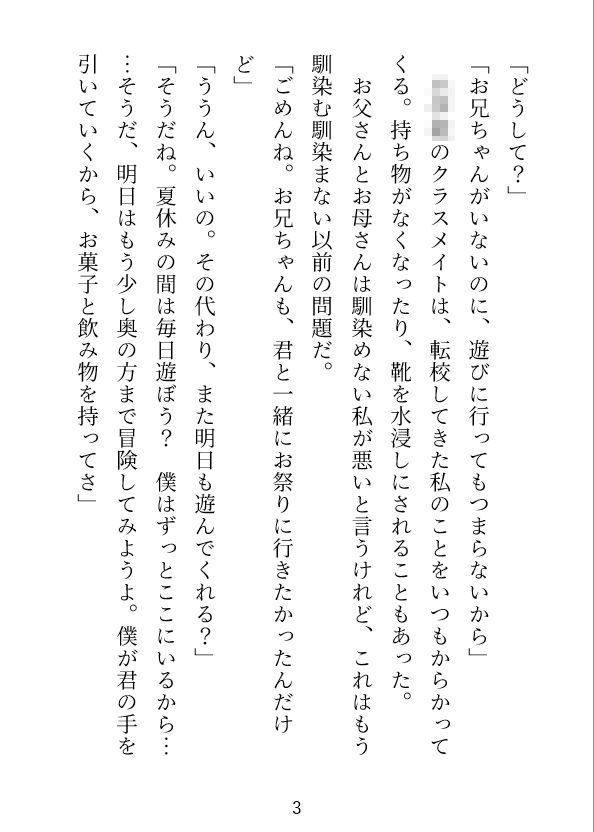 「どうして？」
「お兄ちゃんがいないのに、遊びに行ってもつまらないから」
のクラスメイトは、転校してきた私のことをいつもからかって
くる。持ち物がなくなったり、靴を水浸しにされることもあった。
お父さんとお母さんは馴染めない私が悪いと言うけれど、これはもう
馴染む馴染まない以前の問題だ。
「ごめんね。お兄ちゃんも、君と一緒にお祭りに行きたかったんだけ
ど」
「ううん、いいの。その代わり、また明日も遊んでくれる？」
「そうだね。夏休みの間は毎日遊ぼう？　僕はずっとここにいるから…
…そうだ、明日はもう少し奥の方まで冒険してみようよ。僕が君の手を
引いていくから、お菓子と飲み物を持ってさ」
3